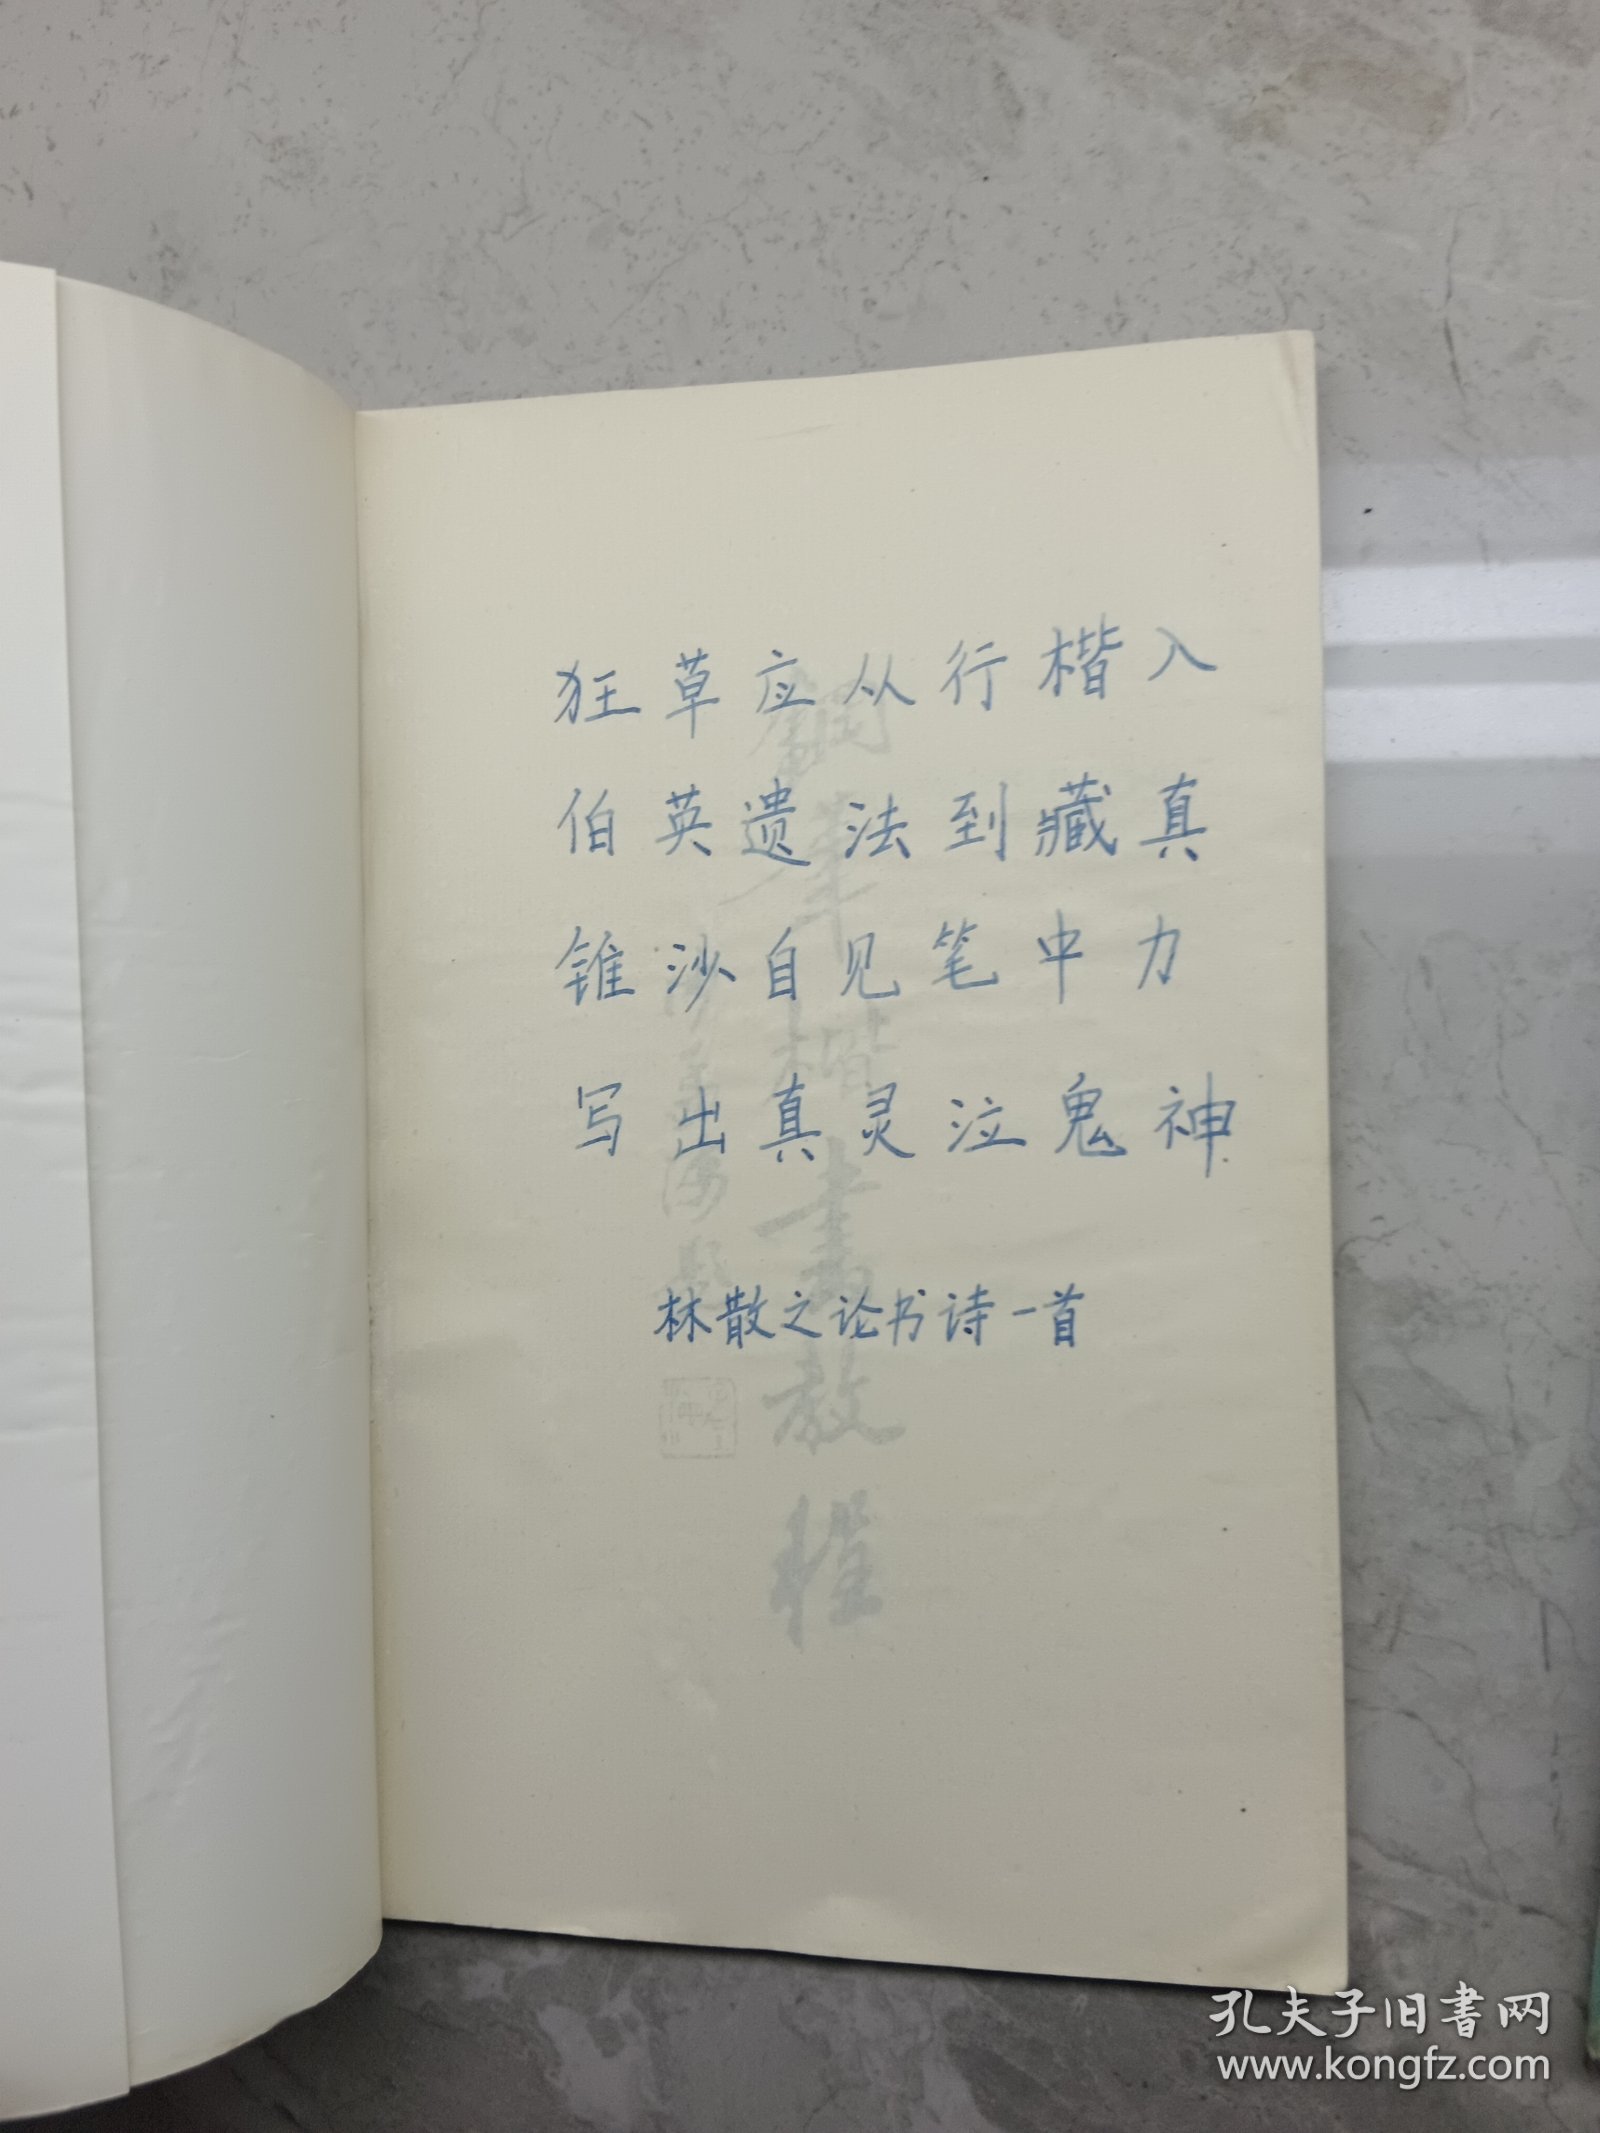 狂草应从行楷入
伯英遗法到藏真
锥沙自见笔中力
写出真灵泣鬼神
林散之论书诗一首
钢笔楷书教程
孔夫子旧書网
www.kongfz.com